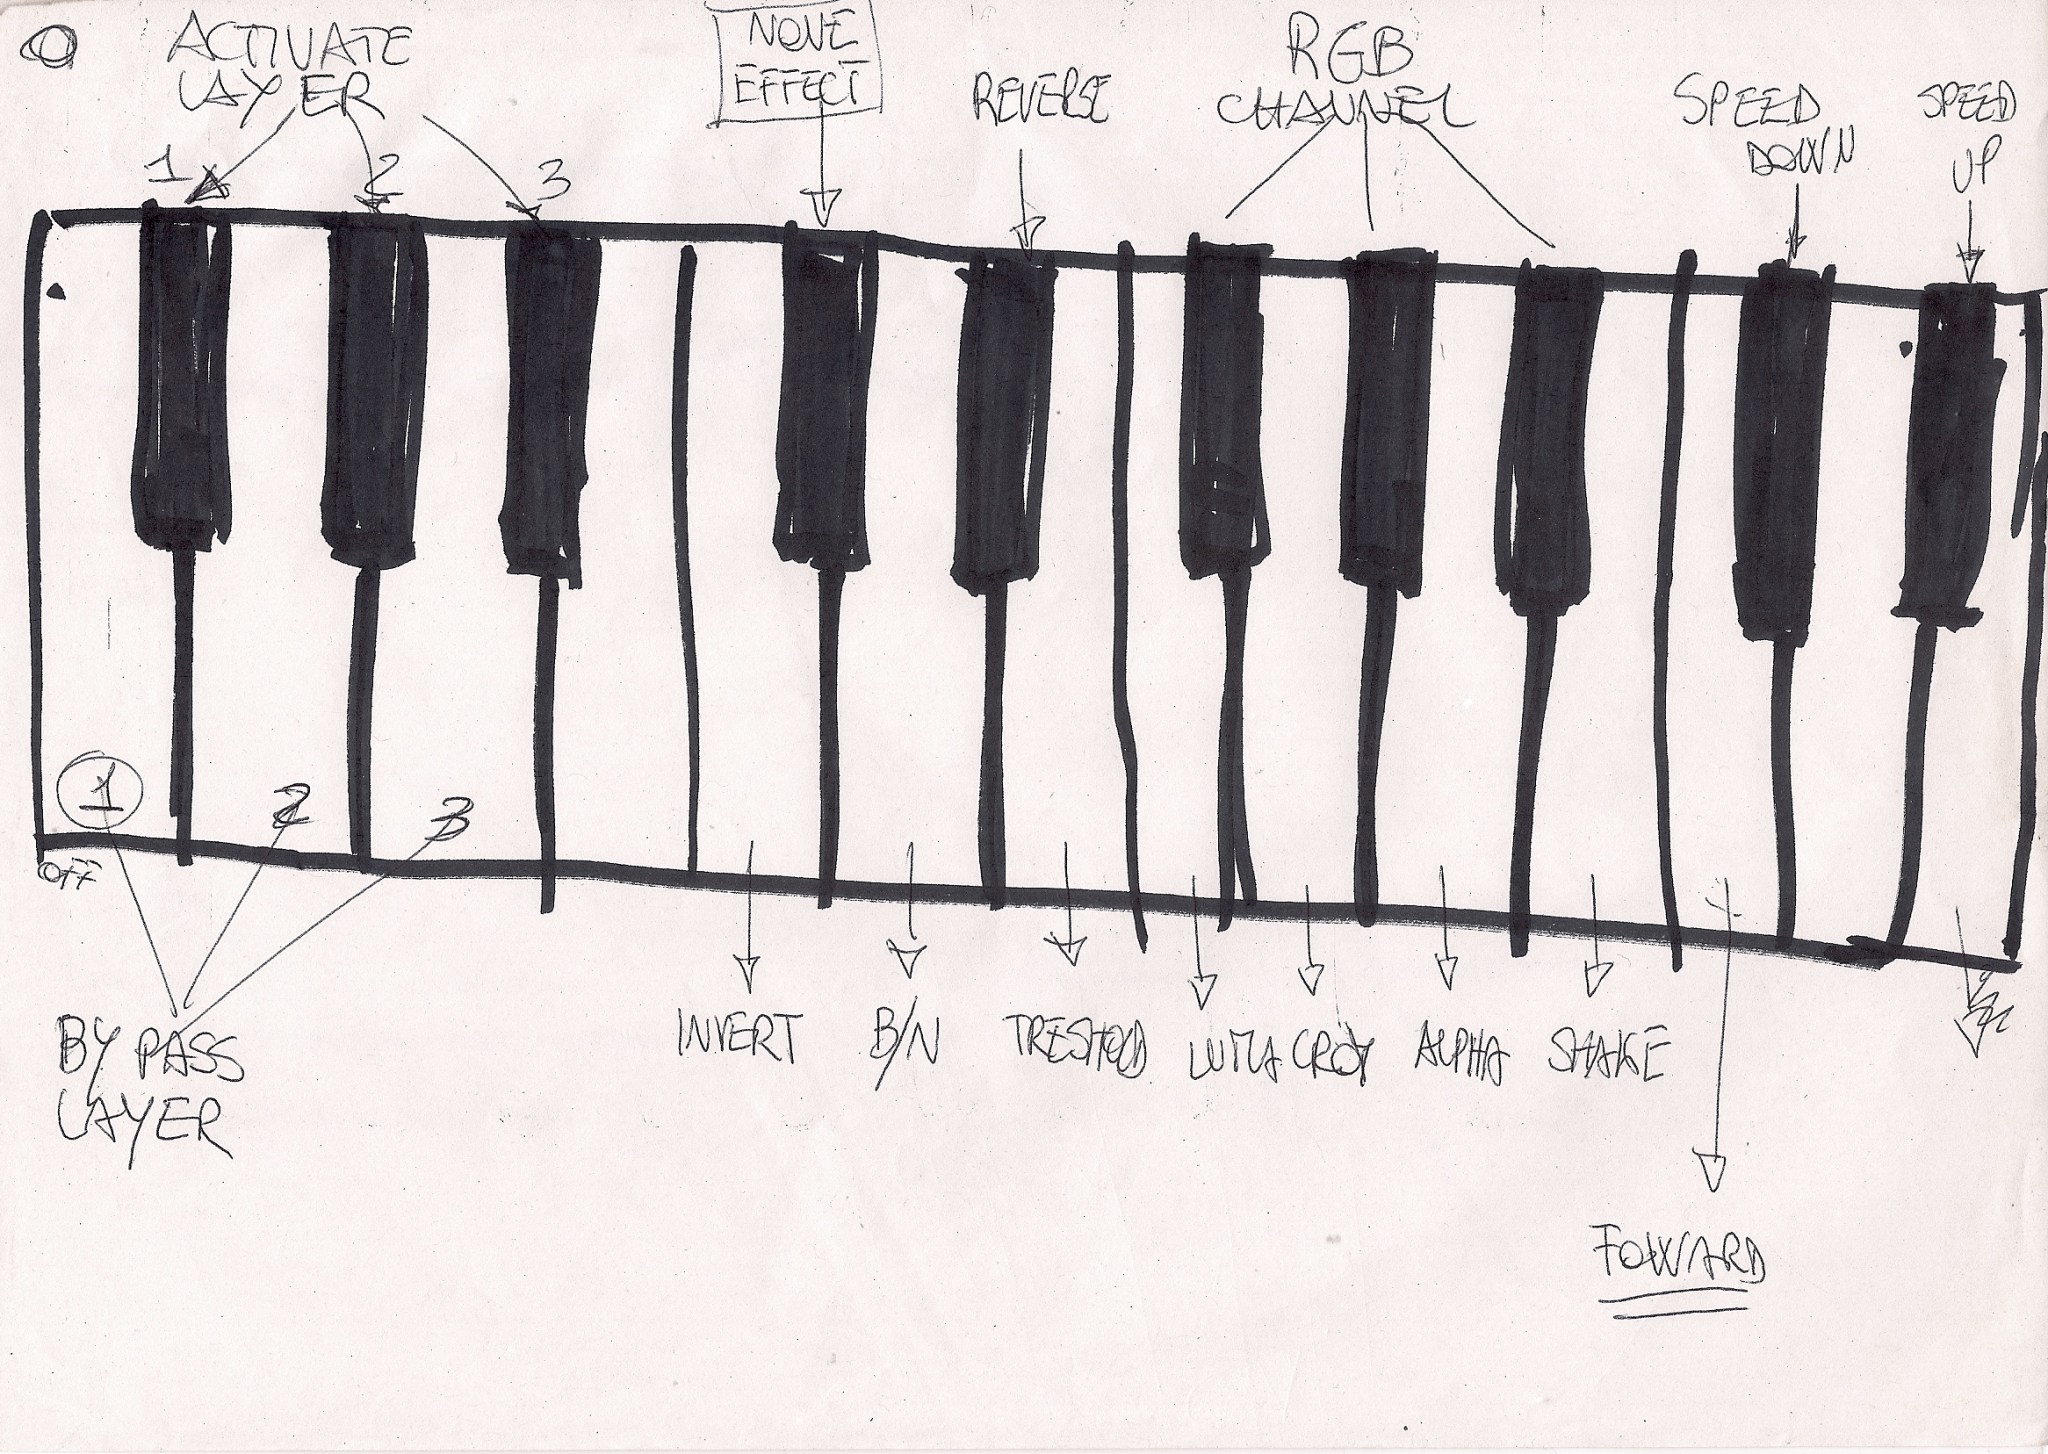 ACTIVATE
LAYER
1 2 3
NONE
EFFECT
REVERSE
RGB
CHANNEL
SPEED
DOWN
SPEED
UP
1 2 3
OFF
BY PASS
LAYER
INVERT
B/N
TRESHOLD
LUMA
ALPHA
SHAKE
FOWARD